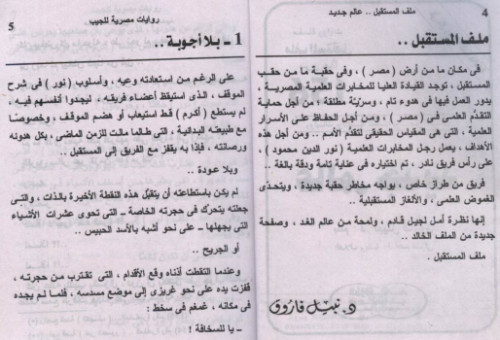 4
ملف المستقبل .. عالم جديد
ملف المستقبل ..
فى مكان ما من أرض ( مصر ) ، وفى حقبة ما من حقب
المستقبل ، توجد القيادة العليا للمخابرات العلمية المصرية ،
يدور العمل فيها فى هدوء تام ، وسرية مطلقة ؛ من أجل حماية
التقدم العلمى فى ( مصر ) ، ومن أجل الحفاظ على الأسرار
العلمية ، التى هى المقياس الحقيقى لتقدم الأمم .. ومن أجل هذه
الأهداف ، يعمل رجل المخابرات العلمية ( نور الدين محمود ) ،
على رأس فريق نادر ، تم اختياره فى عناية تامة ودقة بالغة ..
فريق من طراز خاص ، يواجه مخاطر حقبة جديدة ، ويتحدى
الغموض العلمى ، والألغاز المستقبلية ..
إنها نظرة أمل لجيل قادم ، ولمحة من عالم الغد ، وصفحة
جديدة من الملف الخالد ..
ملف المستقبل .
د. نبيل فاروق
روايات مصرية للجيب
5
1 ـ بلا أجوبة ..
على الرغم من استعادته وعيه ، وأسلوب ( نور ) فى شرح
الموقف ، الذى استيقظ أعضاء فريقه ، ليجدوا أنفسهم فيه ،
لم يستطع ( أكرم ) قط استيعاب أو هضم الموقف ، وخصوصًا
مع طبيعته البدائية ، التى طالما مالت للزمن الماضى ، بكل هدوئه
ورصانته ، فإذا به يقفز مع الفريق إلى المستقبل ..
وبلا عودة ..
لم يكن باستطاعته أن يتقبل هذه النقطة الأخيرة بالذات ، والتى
جعلته يتحرك فى حجرته الخاصة ـ التى تحوى عشرات الأشياء
التى يجهلها ـ على نحو أشبه بالأسد الحبيس ..
أو الجريح ..
وعندما التقطت أذناه وقع الأقدام ، التى تقترب من حجرته ،
قفزت يده على نحو غريزى إلى موضع مسدسه ، فلما لم يجده
فى مكانه ، غمغم فى سخط :
ـ يا للسخافة !